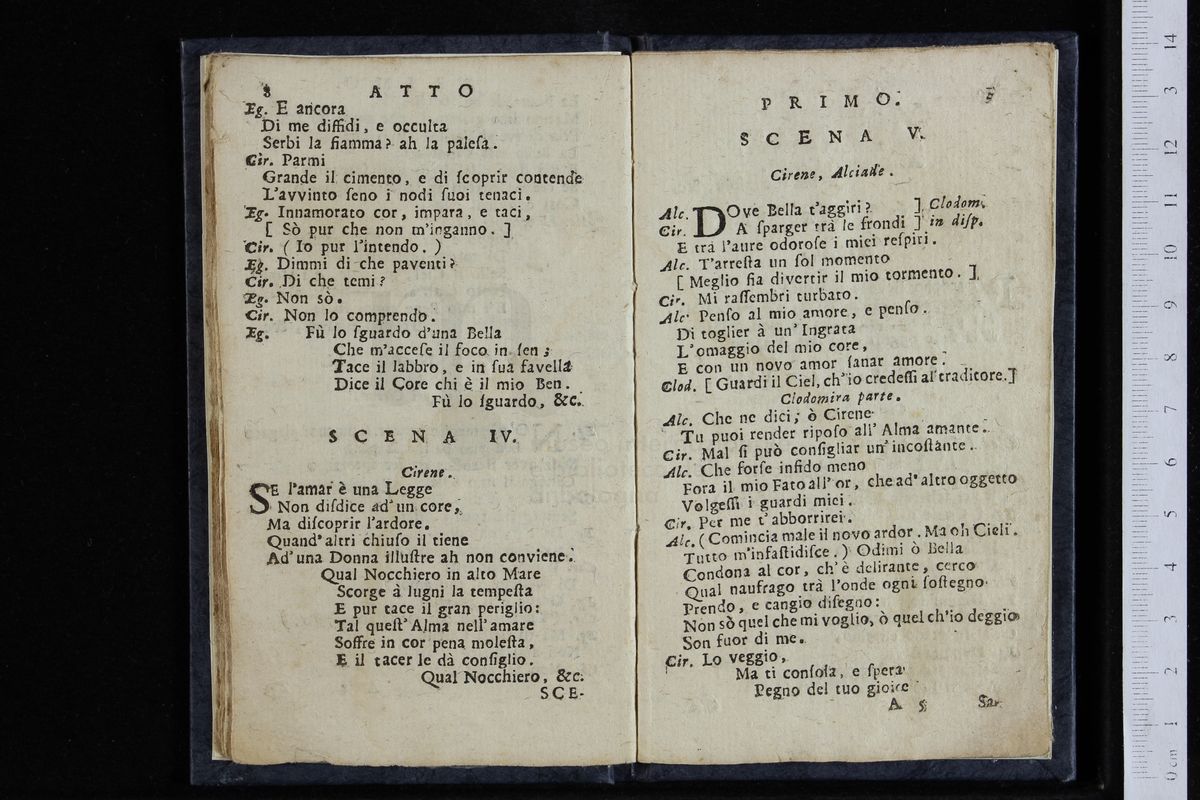 8 ATTO
Eg. E ancora
Di me diffidi, e occulta
Serbi la fiamma? ah la paleſa.
Cir. Parmi
Grande il cimento, e di ſcoprir contende
L'avvinto ſeno i nodi ſuoi tenaci.
Eg. Innamorato cor, impara, e taci,
[ Sò pur che non m'inganno. ]
Cir. ( Io pur l'intendo. )
Eg. Dimmi di che paventi?
Cir. Di che temi?
Eg. Non sò.
Cir. Non lo comprendo.
Eg. Fù lo ſguardo d'una Bella
Che m'acceſe il foco in ſen;
Tace il labbro, e in ſua favella
Dice il Core chi è il mio Ben.
Fù lo ſguardo, &c.
SCENA IV.
Cirene.
SE l'amar è una Legge
Non diſdice ad'un core,
Ma diſcoprir l'ardore.
Quand'altri chiuſo il tiene
Ad'una Donna illuſtre ah non conviene.
Qual Nocchiero in alto Mare
Scorge à lugni la tempeſta
E pur tace il gran periglio:
Tal queſt'Alma nell'amare
Soffre in cor pena moleſta,
E il tacer le dà conſiglio.
Qual Nocchiero, &c.
SCE-
PRIMO.
SCENA V.
Cirene, Alciade.
Alc. DOve Bella t'aggiri? ] Clodom.
Cir. A ſparger trà le frondi ] in diſp.
E trà l'aure odoroſe i miei reſpiri.
Alc. T'arreſta un ſol momento
[ Meglio fia divertir il mio tormento. ]
Cir. Mi raſſembri turbato.
Alc. Penſo al mio amore, e penſo.
Di toglier à un'Ingrata
L'omaggio del mio core,
E con un novo amor ſanar amore.
Clod. [ Guardi il Ciel, ch'io credeſſi al traditore. ]
Clodomira parte.
Alc. Che ne dici; ò Cirene
Tu puoi render ripoſo all'Alma amante.
Cir. Mal ſi può conſigliar un'incoſtante.
Alc. Che forſe infido meno
Fora il mio Fato all'or, che ad'altro oggetto
Volgeſſi i guardi miei.
Cir. Per me t'abborrirei.
Alc. ( Comincia male il novo ardor. Ma oh Cieli.
Tutto m'infaſtidiſce. ) Odimi ò Bella
Condona al cor, ch'è delirante, cerco
Qual naufrago trà l'onde ogni ſoſtegno
Prendo, e cangio diſegno:
Non sò quel che mi voglio, ò quel ch'io deggio
Son fuor di me.
Cir. Lo veggio,
Ma ti conſola, e ſpera
Pegno del tuo gioire
A 5 Sar